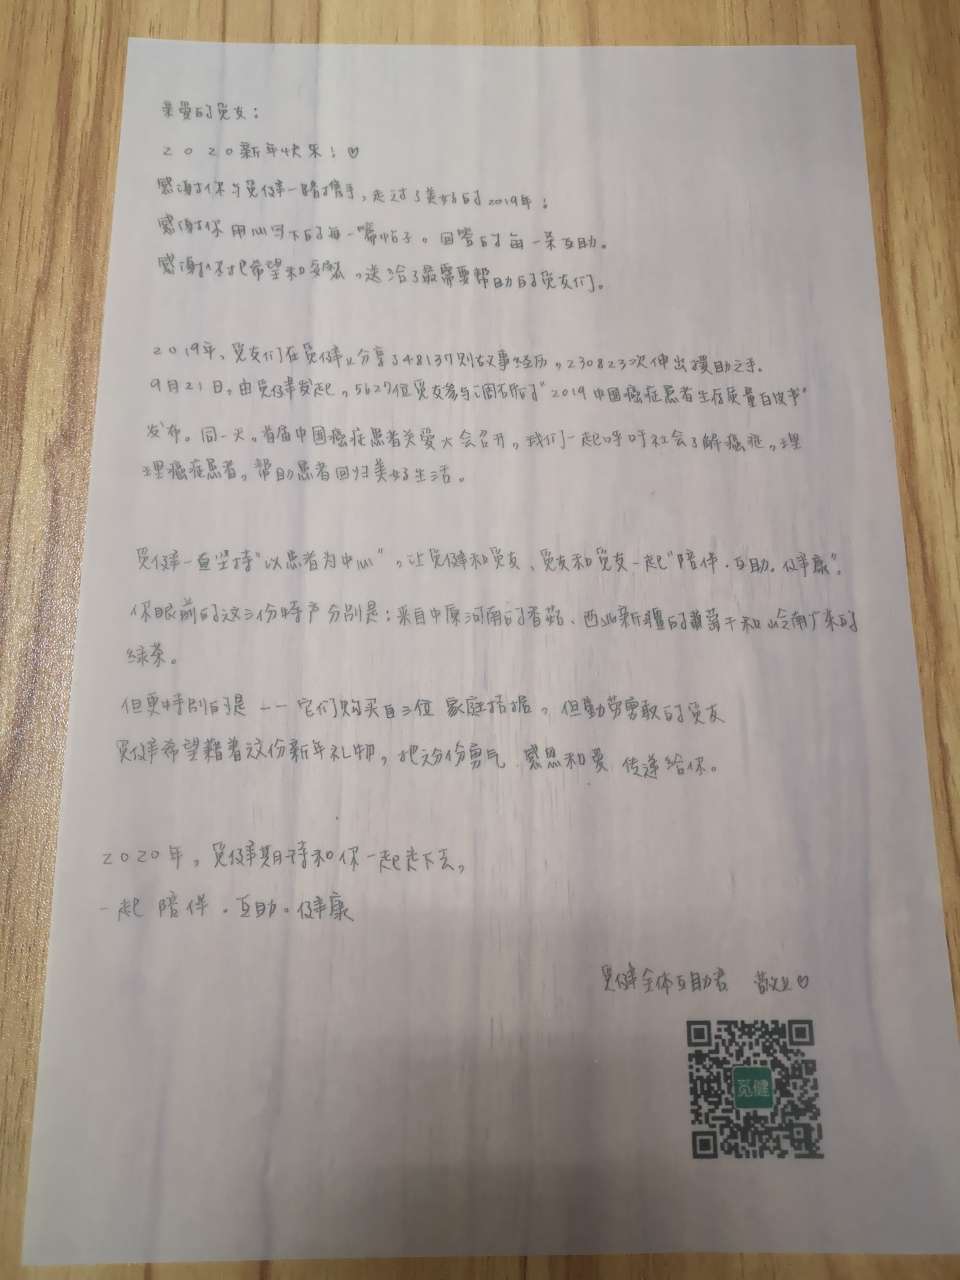 亲爱的觅友：
2020新年快乐！♡
感谢你与觅健一路携手，走过了美好的2019年；
感谢你用心写下的每一篇帖子。回答的每一条互助。
感谢你把希望和安慰，送给了最需要帮助的觅友们。
2019年、觅友们在觅健上分享了48137则故事经历，230823次伸出援助之手。
9月21日，由觅健发起，5627位觅友参与调研的"2019中国癌症患者生存质量白皮书"
发布。同一天。首届中国癌症患者关爱大会召开，我们一起呼吁社会了解癌症，理
理癌症患者，帮助患者回归美好生活。
觅健一直坚持"以患者为中心"，让觅健和觅友、觅友和觅友一起"陪伴．互助．健康"。
你眼前的这三份特产分别是：来自中原河南的香菇、西北新疆的葡萄干和岭南广东的
绿茶。
但更特别的是——它们购买自三位家庭拮据，但勤劳勇敢的觅友
觅健希望藉着这份新年礼物，把这份勇气 感恩和爱 传递给你。
2020年，觅健期待和你一起走下去，
一起 陪伴．互助．健康
觅健全体互助君 敬上♡
觅健